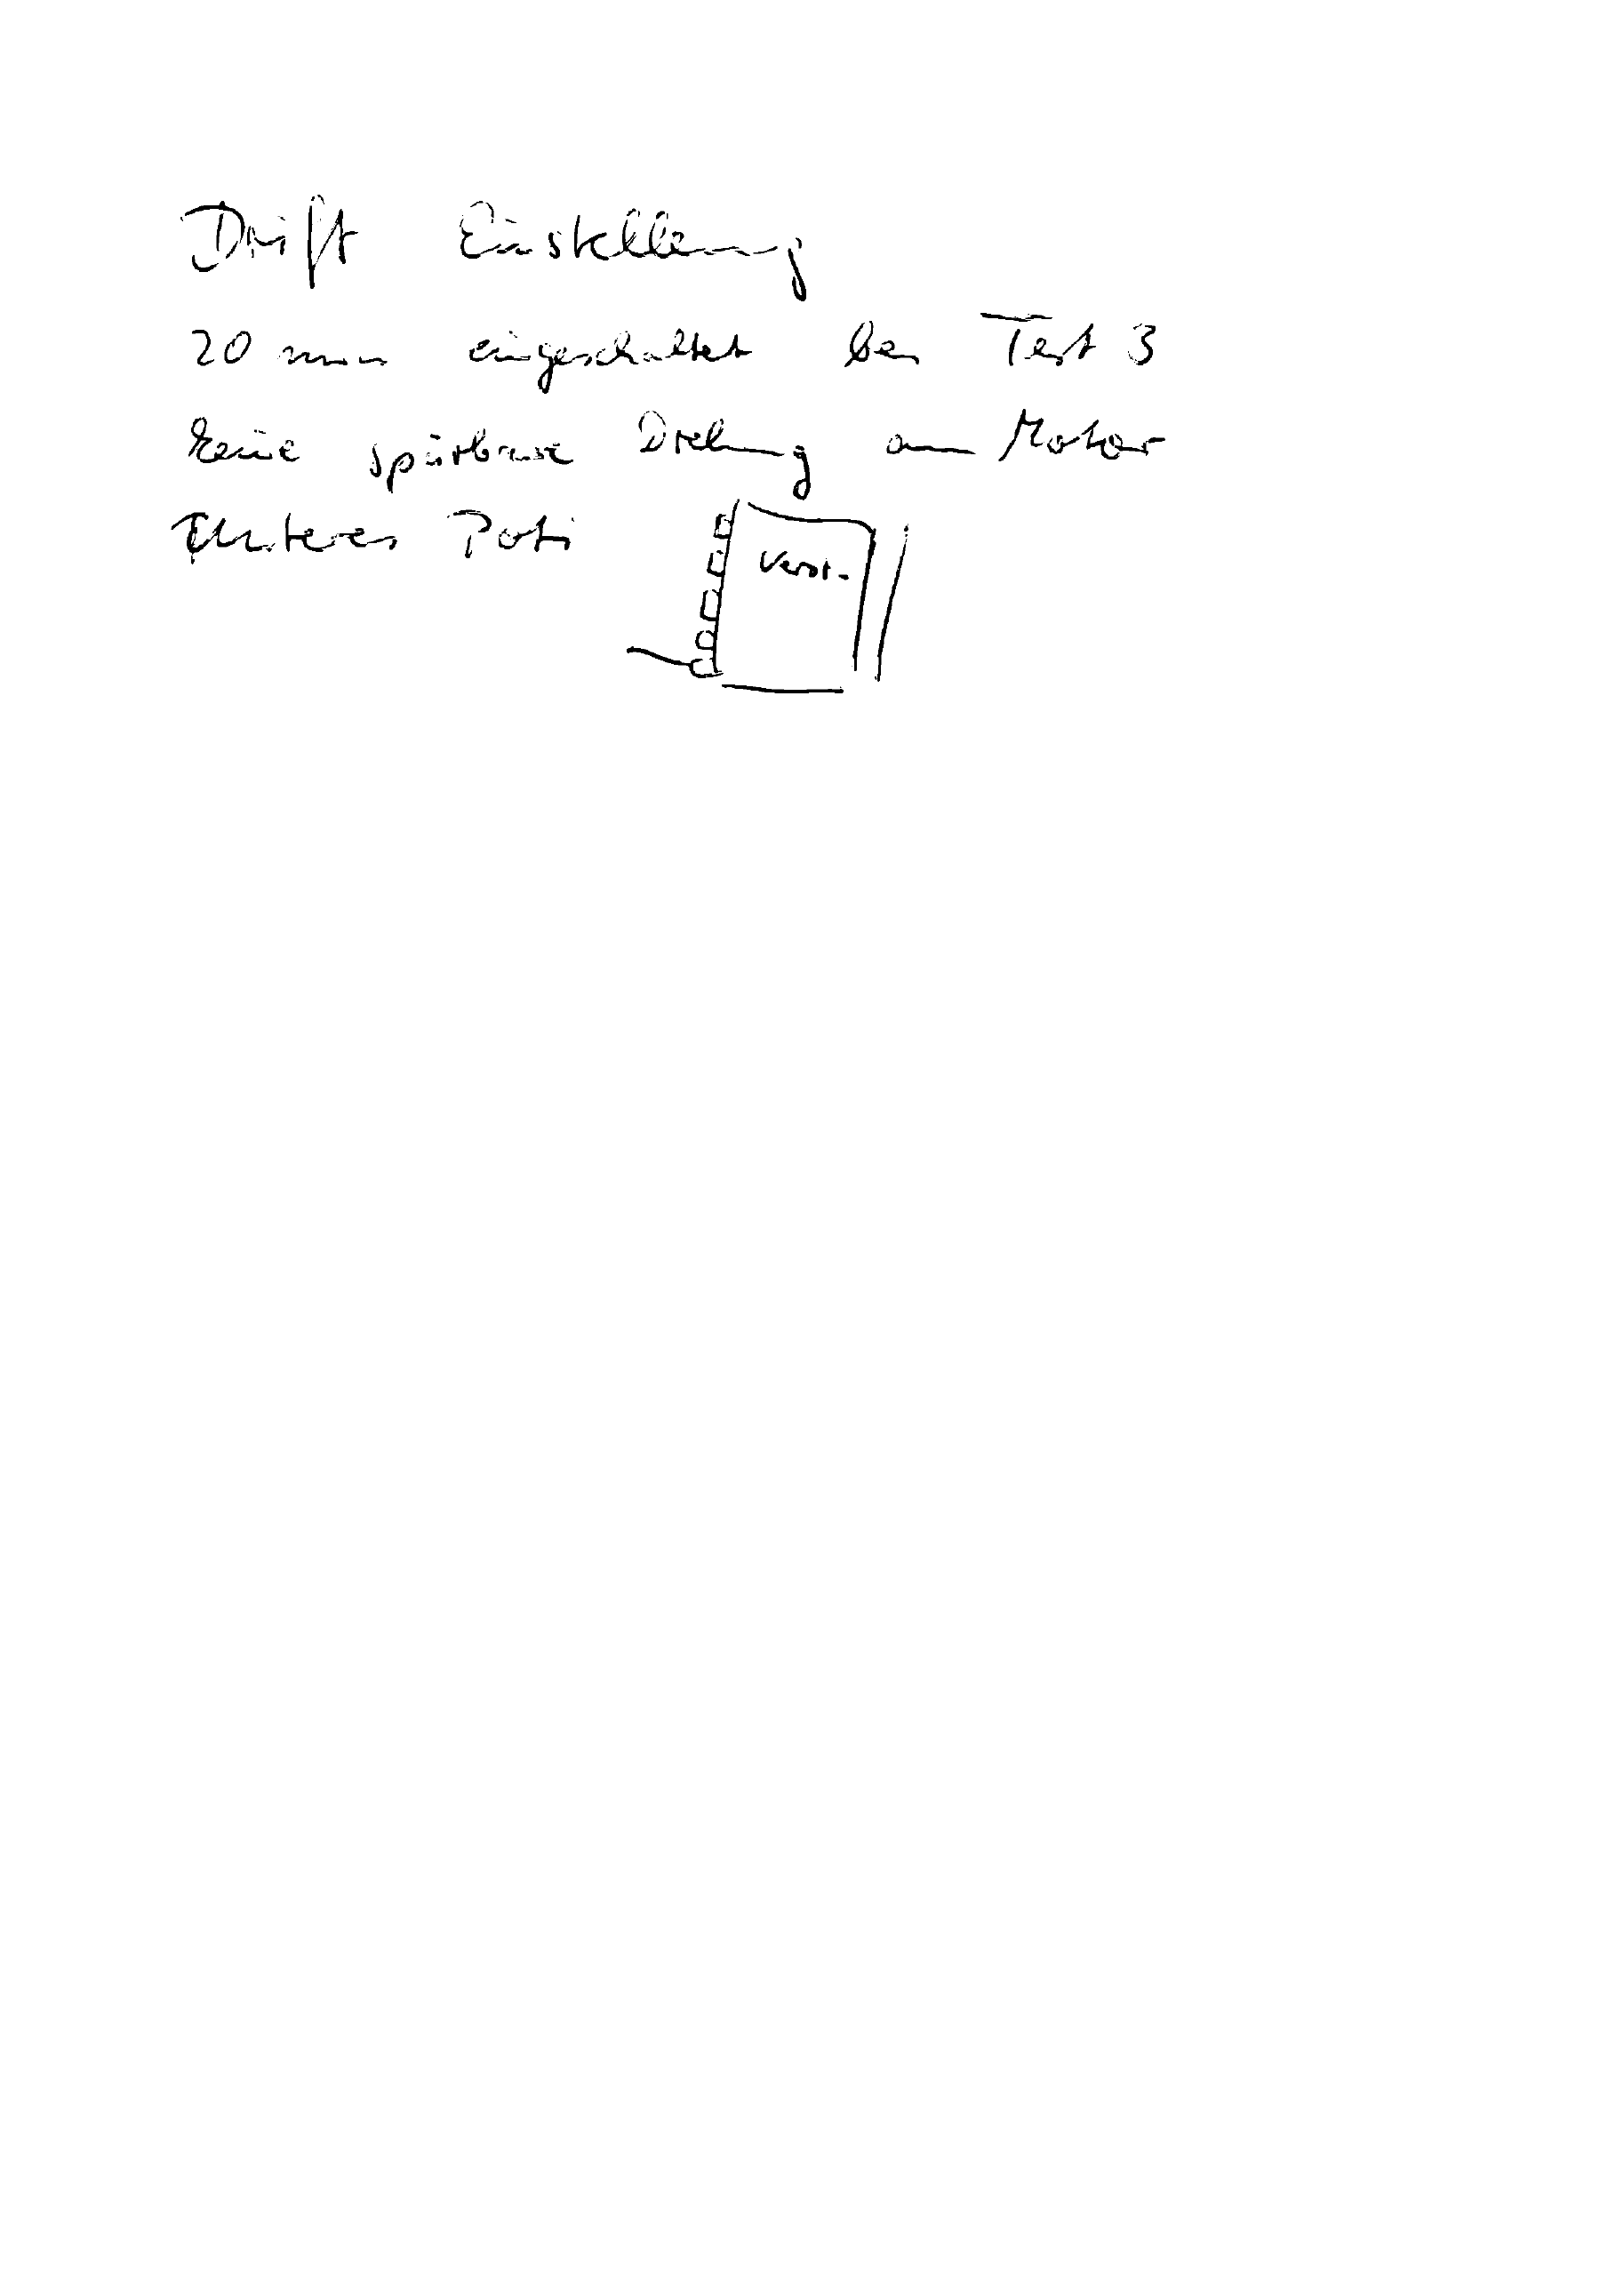 Drift Einstellung
20 min eingeschaltet bei Test 3
keine spürbare Drehung am Motor
Unteres Poti
Verst.